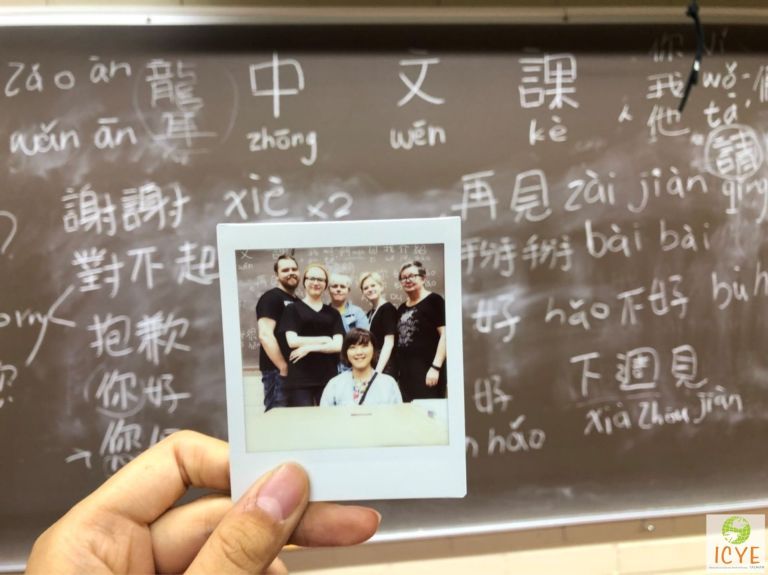 zǎo ān 龍 中 文 課 你 nǐ
wǎn ān zhōng wén kè 我 wǒ
他 tā
謝謝 xiè x2 再見 zài jiàn 請 qǐng
對不起 掰掰 bāi bāi
抱歉 好 hǎo 不好 bù h
你好 好 下週見
您 hǎo xià zhōu jiàn
ICYE
TAIWAN